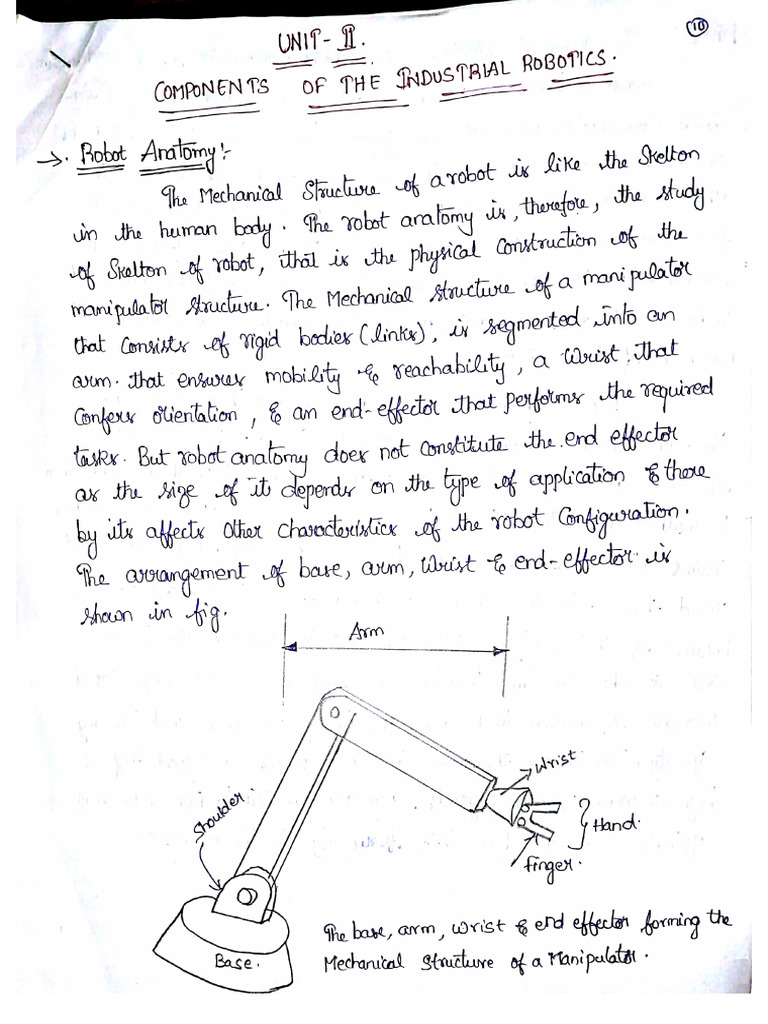 10
UNIT-II.
COMPONENTS OF THE INDUSTRIAL ROBOTICS.
→. Robot Anatomy:-
The Mechanical Structure of a robot is like the Skelton
in the human body. The robot anatomy is, therefore, the study
of Skelton of robot, that is the physical construction of the
manipulator structure. The Mechanical structure of a manipulator
that consists of rigid bodies (links), is segmented into an
arm. that ensures mobility & reachability, a wrist that
confers orientation, & an end-effector that performs the required
tasks. But robot anatomy does not constitute the end effector
as the size of it depends on the type of application & there
by its affects other characteristics of the robot configuration.
The arrangement of base, arm, wrist & end-effector is
shown in fig.
Arm
Wrist.
Shoulder.
Hand.
finger.
Base.
The base, arm, wrist & end effector forming the
Mechanical structure of a Manipulator.